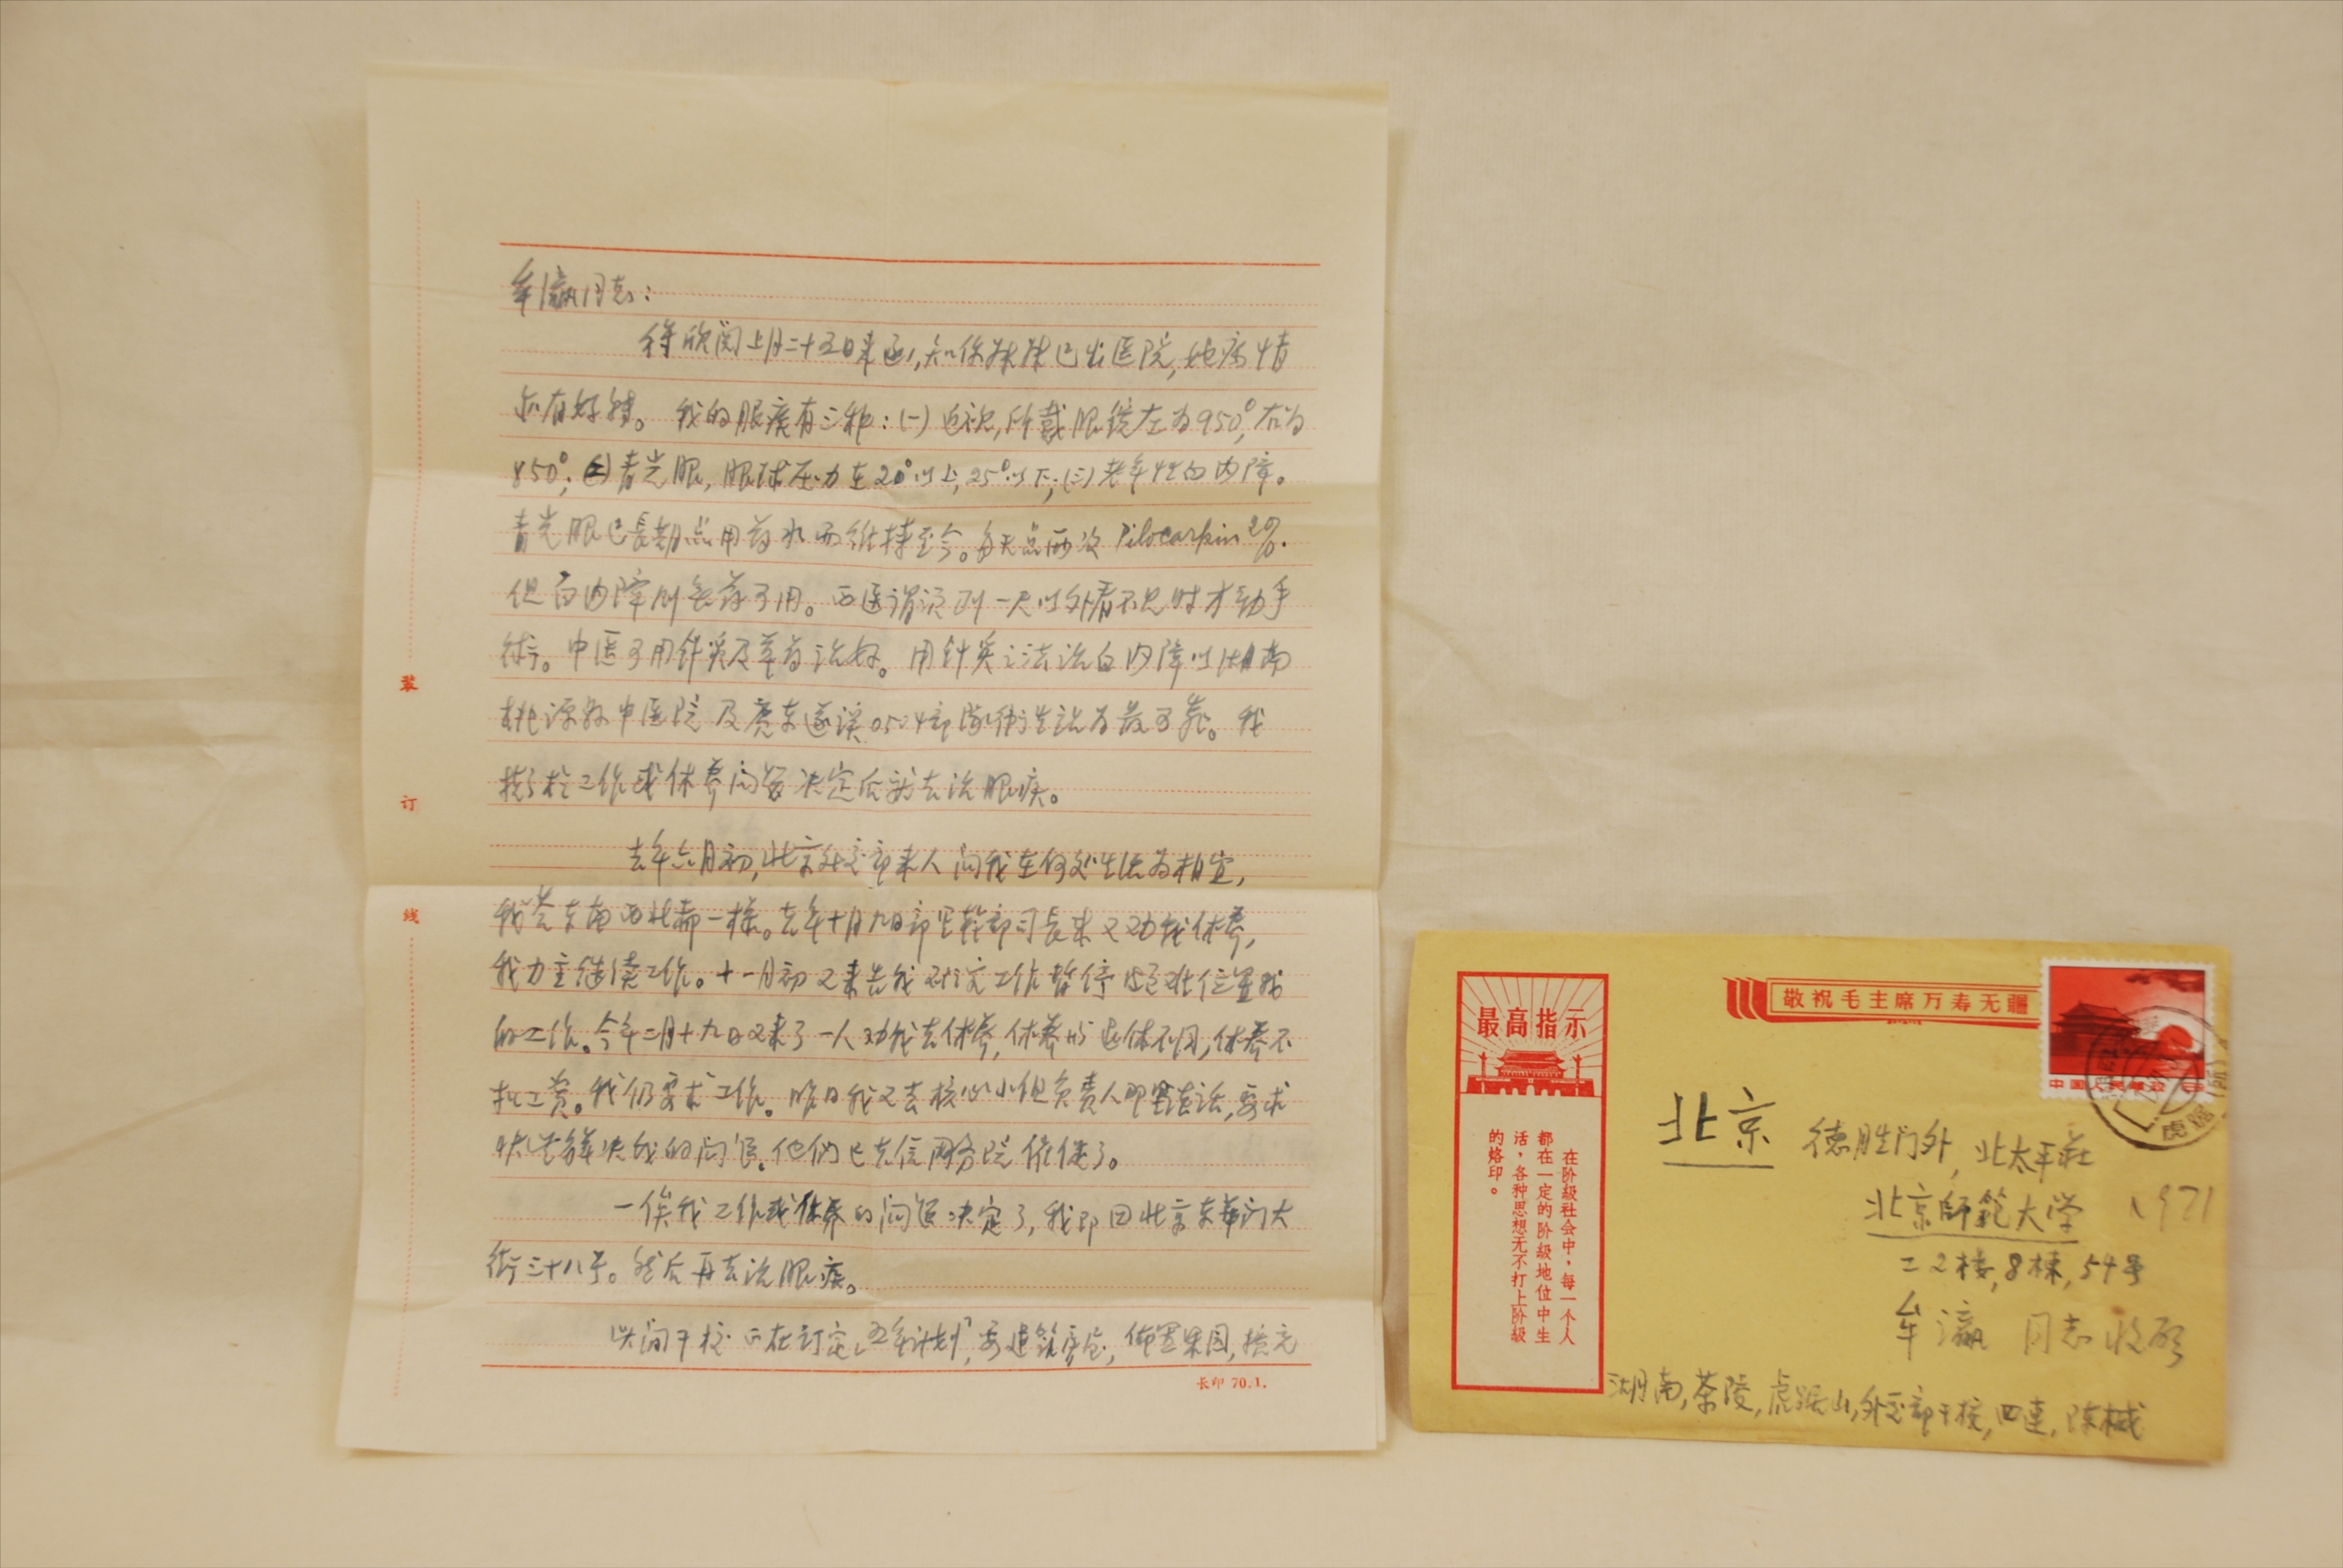 牟瀛同志：
得欣阅上月二十五日来函，知你妹妹已出医院，她病情
亦有好转。我的眼疾有三种：(一)近视，所载眼镜左为950°，右为
850°；(二)青光眼，眼球压力在20°以上，25°以下；(三)老年性白内障。
青光眼已長期点用药水而维持至今。每天点两次 Pilocarpin 2%.
但白内障则无药可用。西医谓须到一尺以外看不见时才动手
術。中医可用针灸及草药治好。用针灸之法治白内障以湖南
桃源县中医院及广东遂溪0504部队衛生院为最可靠。我
拟于工作或休养问题决定后就去治眼疾。
去年六月初，北京外交部来人问我在何处生活为相宜，
我答东南西北都一様。去年十月九日部里幹部司長来又劝我休养，
我力主继续工作。十一月初又来告我
的工作。今年二月十九日又来了一人劝我去休养，休养与退休不同，休养不
扣工资。我仍要求工作。昨日我又去核心小组负责人那里谈话，要求
快些解决我的问題。他们已去信国务院催促了。
一俟我工作或休养的问題决定了，我即回北京东華门大
街三十八号。然后再去治眼疾。
此间干校正在订定“五年计划”，要建筑房屋，佈置果园，擴充
装
订
线
长印 70.1.
最高指示
在阶级社会中，每一个人
都在一定的阶级地位中生
活，各种思想无不打上阶级
的烙印。
敬祝毛主席万寿无疆
中国人民邮政
北京 德胜门外，北太平莊
北京師範大学
1971
工2楼，8栋，54号
牟瀛 同志收啓
湖南，茶陵，虎踞山，外交部干校，四連，陈棫